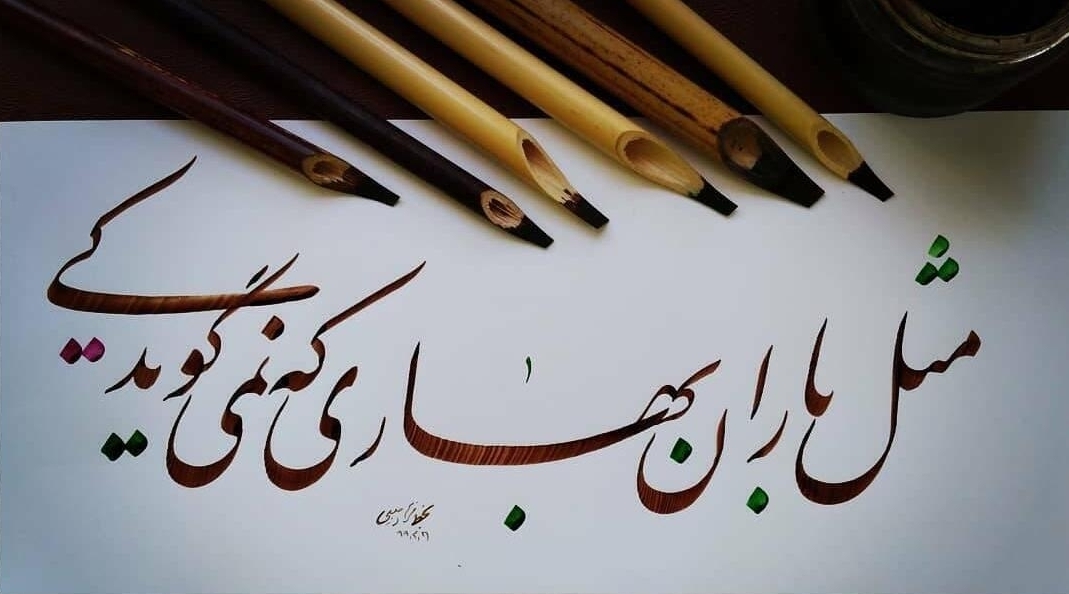 مثل باران بهاری که نمی گوید کی
بخط